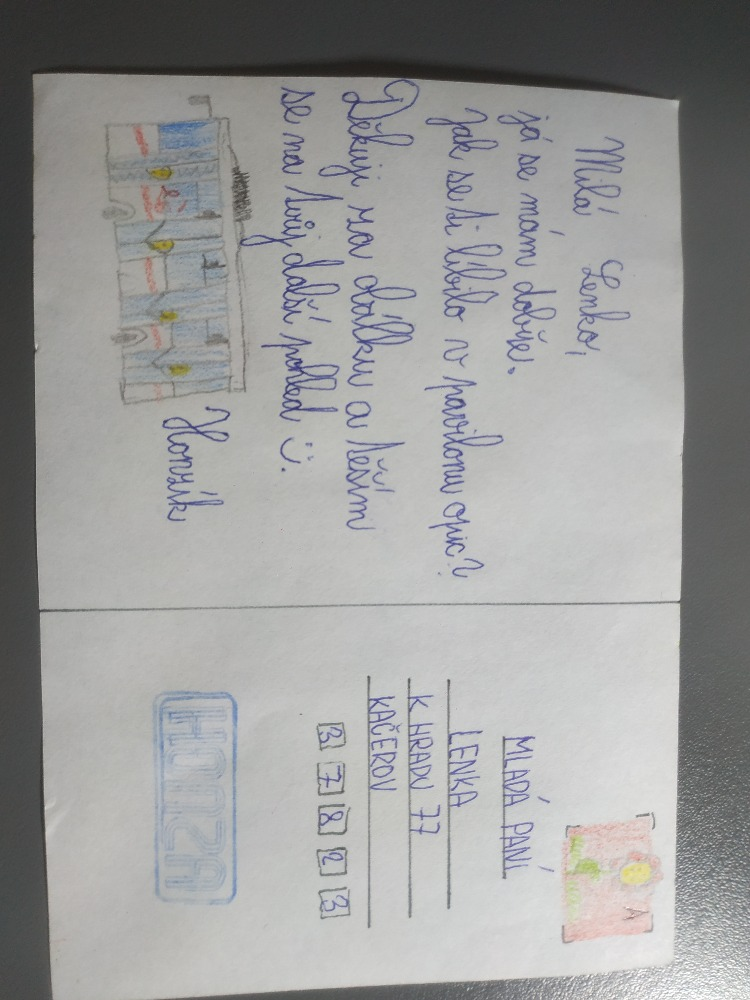 Milá Lenko,
já se mám dobře.
Jak se ti líbilo v pavilonu opic?
Děkuji za obálku a těším
se na tvůj další pohled :).
Honzík
MLADÁ PANÍ
LENKA
K HRADU 77
KAČEROV
3 7 8 2 3
HONZA